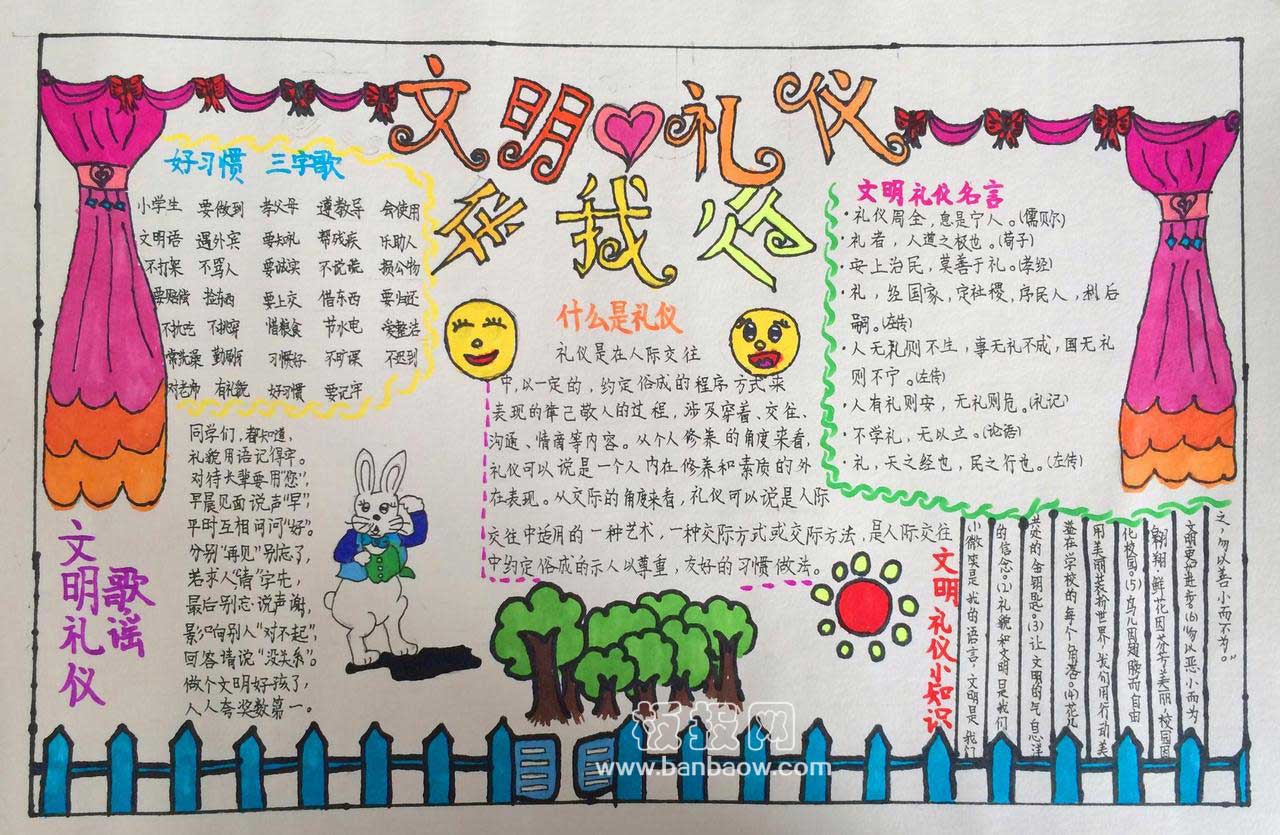 文明礼仪
伴我行
好习惯 三字歌
小学生 要做到 孝父母 遵教导 会使用
文明语 遇外宾 要知礼 帮残疾 乐助人
不打架 不骂人 要诚实 不说谎 损公物
要赔偿 捡东西 要上交 借东西 要归还
不挑吃 不挑穿 惜粮食 节水电 爱整洁
常洗澡 勤剪指 习惯好 不旷课 不迟到
对老师 有礼貌 好习惯 要记牢
同学们,都知道,
礼貌用语记得牢。
对待长辈要用“您”,
早晨见面说声“早”,
平时互相问问“好”。
分别“再见”别忘了,
若求人“请”字先,
最后别忘说声谢,
影响别人“对不起”,
回答请说“没关系”。
做个文明好孩子,
人人夸奖数第一。
文明礼仪
歌谣
什么是礼仪
礼仪是在人际交往
中,以一定的,约定俗成的程序方式来
表现的律己敬人的过程,涉及穿着、交往、
沟通、情商等内容。从个人修养的角度来看,
礼仪可以说是一个人内在修养和素质的外
在表现。从交际的角度来看,礼仪可以说是人际
交往中适用的一种艺术,一种交际方式或交际方法,是人际交往
中约定俗成的示人以尊重,友好的习惯做法。
文明礼仪名言
·礼仪周全,息是宁人。(儒贝尔)
·礼者,人道之极也。(荀子)
·安上治民,莫善于礼。(孝经)
·礼,经国家,定社稷,序民人,利后
嗣。(左传)
·人无礼则不生,事无礼不成,国无礼
则不宁。(左传)
·人有礼则安,无礼则危。(礼记)
·不学礼,无以立。(论语)
·礼,天之经也,民之行也。(左传)
文明礼仪小知识
小微笑是我的语言,文明是我们
的信念。(2)礼貌如文明是我们
共处的金钥匙。(3)让文明的气息洋
溢在学校的每个角落。(4)花儿
用美丽装扮世界,我们用行动美
化校园。(5)鸟儿因翅膀而自由
翱翔,鲜花因芬芳美丽,校园因
文明更加进步。(6)“勿以恶小而为
之,勿以善小而不为。”
板报网
www.banbaow.com